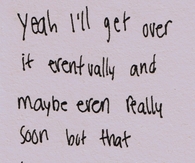 Yeah I'll get over
it eventually and
maybe even really
soon but that